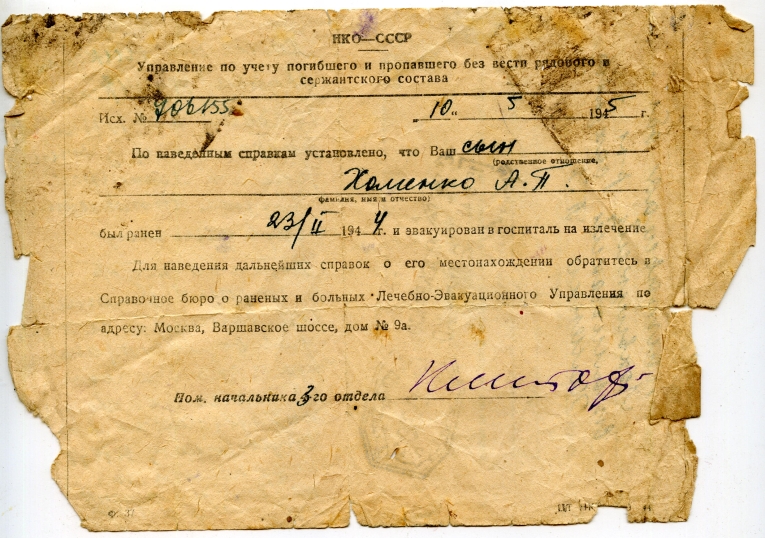 НКО—СССР
Управление по учету погибшего и пропавшего без вести рядового и
сержантского состава
Исх. № 906155 „10" 5 1945 г.
По наведенным справкам установлено, что Ваш сын
(родственное отношение,
Хоменко А. П.
фамилия, имя и отчество)
был ранен 23/II 1944 г. и эвакуирован в госпиталь на излечение
Для наведения дальнейших справок о его местонахождении обратитесь в
Справочное бюро о раненых и больных Лечебно-Эвакуационного Управления по
адресу: Москва, Варшавское шоссе, дом № 9а.
Пом. начальника 3-го отдела